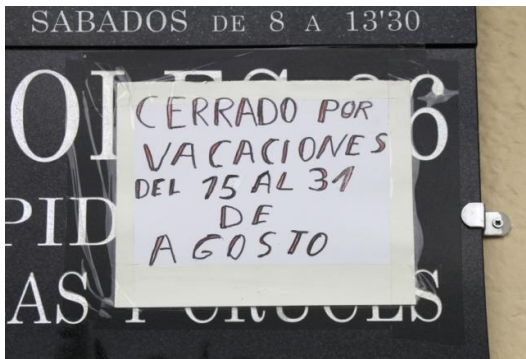 SABADOS DE 8 A 13'30
CERRADO POR
VACACIONES
DEL 15 AL 31
DE
AGOSTO